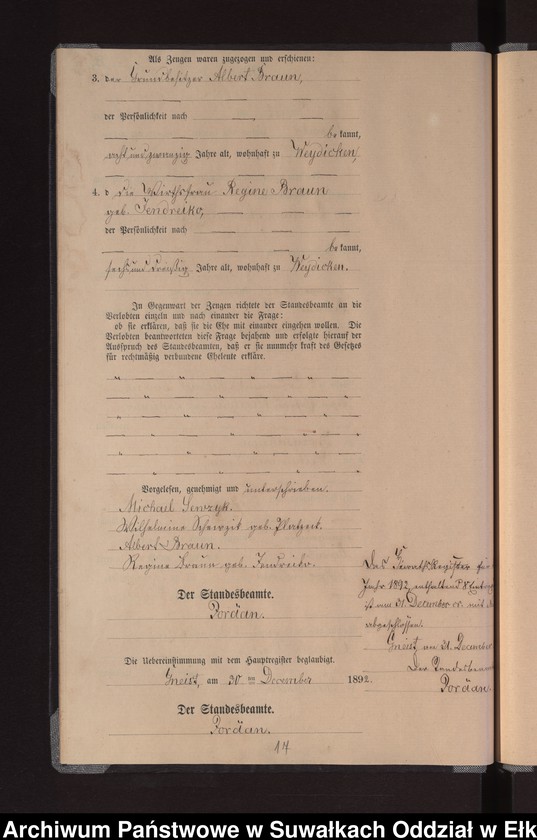 Als Zeugen waren zugezogen und erschienen:
3. der Grundbesitzer Albert Braun,
der Persönlichkeit nach
be kannt,
acht und zwanzig Jahre alt, wohnhaft zu Weydicken,
4. d die Wirthsfrau Regine Braun
geb. Jendreiko,
der Persönlichkeit nach
be kannt,
sechs und dreißig Jahre alt, wohnhaft zu Weydicken.
In Gegenwart der Zeugen richtete der Standesbeamte an die
Verlobten einzeln und nach einander die Frage:
ob sie erklären, daß sie die Ehe mit einander eingehen wollen. Die
Verlobten beantworteten diese Frage bejahend und erfolgte hierauf der
Ausspruch des Standesbeamten, daß er sie nunmehr kraft des Gesetzes
für rechtmäßig verbundene Eheleute erkläre.
Vorgelesen, genehmigt und unterschrieben.
Michael
Wilhelmine geb.
Albert Braun.
Regine Braun geb. Jendreiko.
Der Standesbeamte.
Pordän.
Die Uebereinstimmung mit dem Hauptregister beglaubigt.
Gneist, am 30ten December 1892.
Der Standesbeamte.
Pordän.
14
Das Heirathsregister für
Jahr 1892, enthaltend 8
ist am 31. December cr. mit
abgeschlossen.
Gneist, am 31. December
Der
Pordän
Archiwum Państwowe w Suwałkach Oddział w Ełk